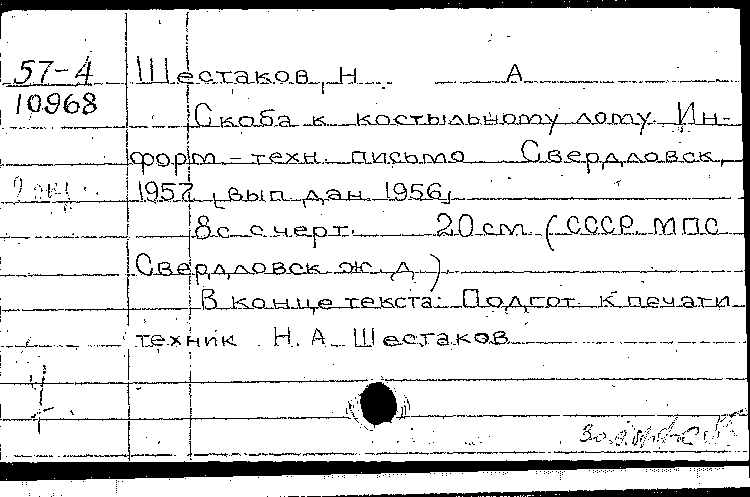 57-4 Шестаков, Н. А
10968
Скоба к костыльному лому. Ин-
форм.-техн. письмо Свердловск,
1957 [вып дан 1956]
8с с черт. 20 см (СССР. МПС
Свердловск ж. д.)
В конце текста: Подгот. к печати
техник Н. А. Шестаков